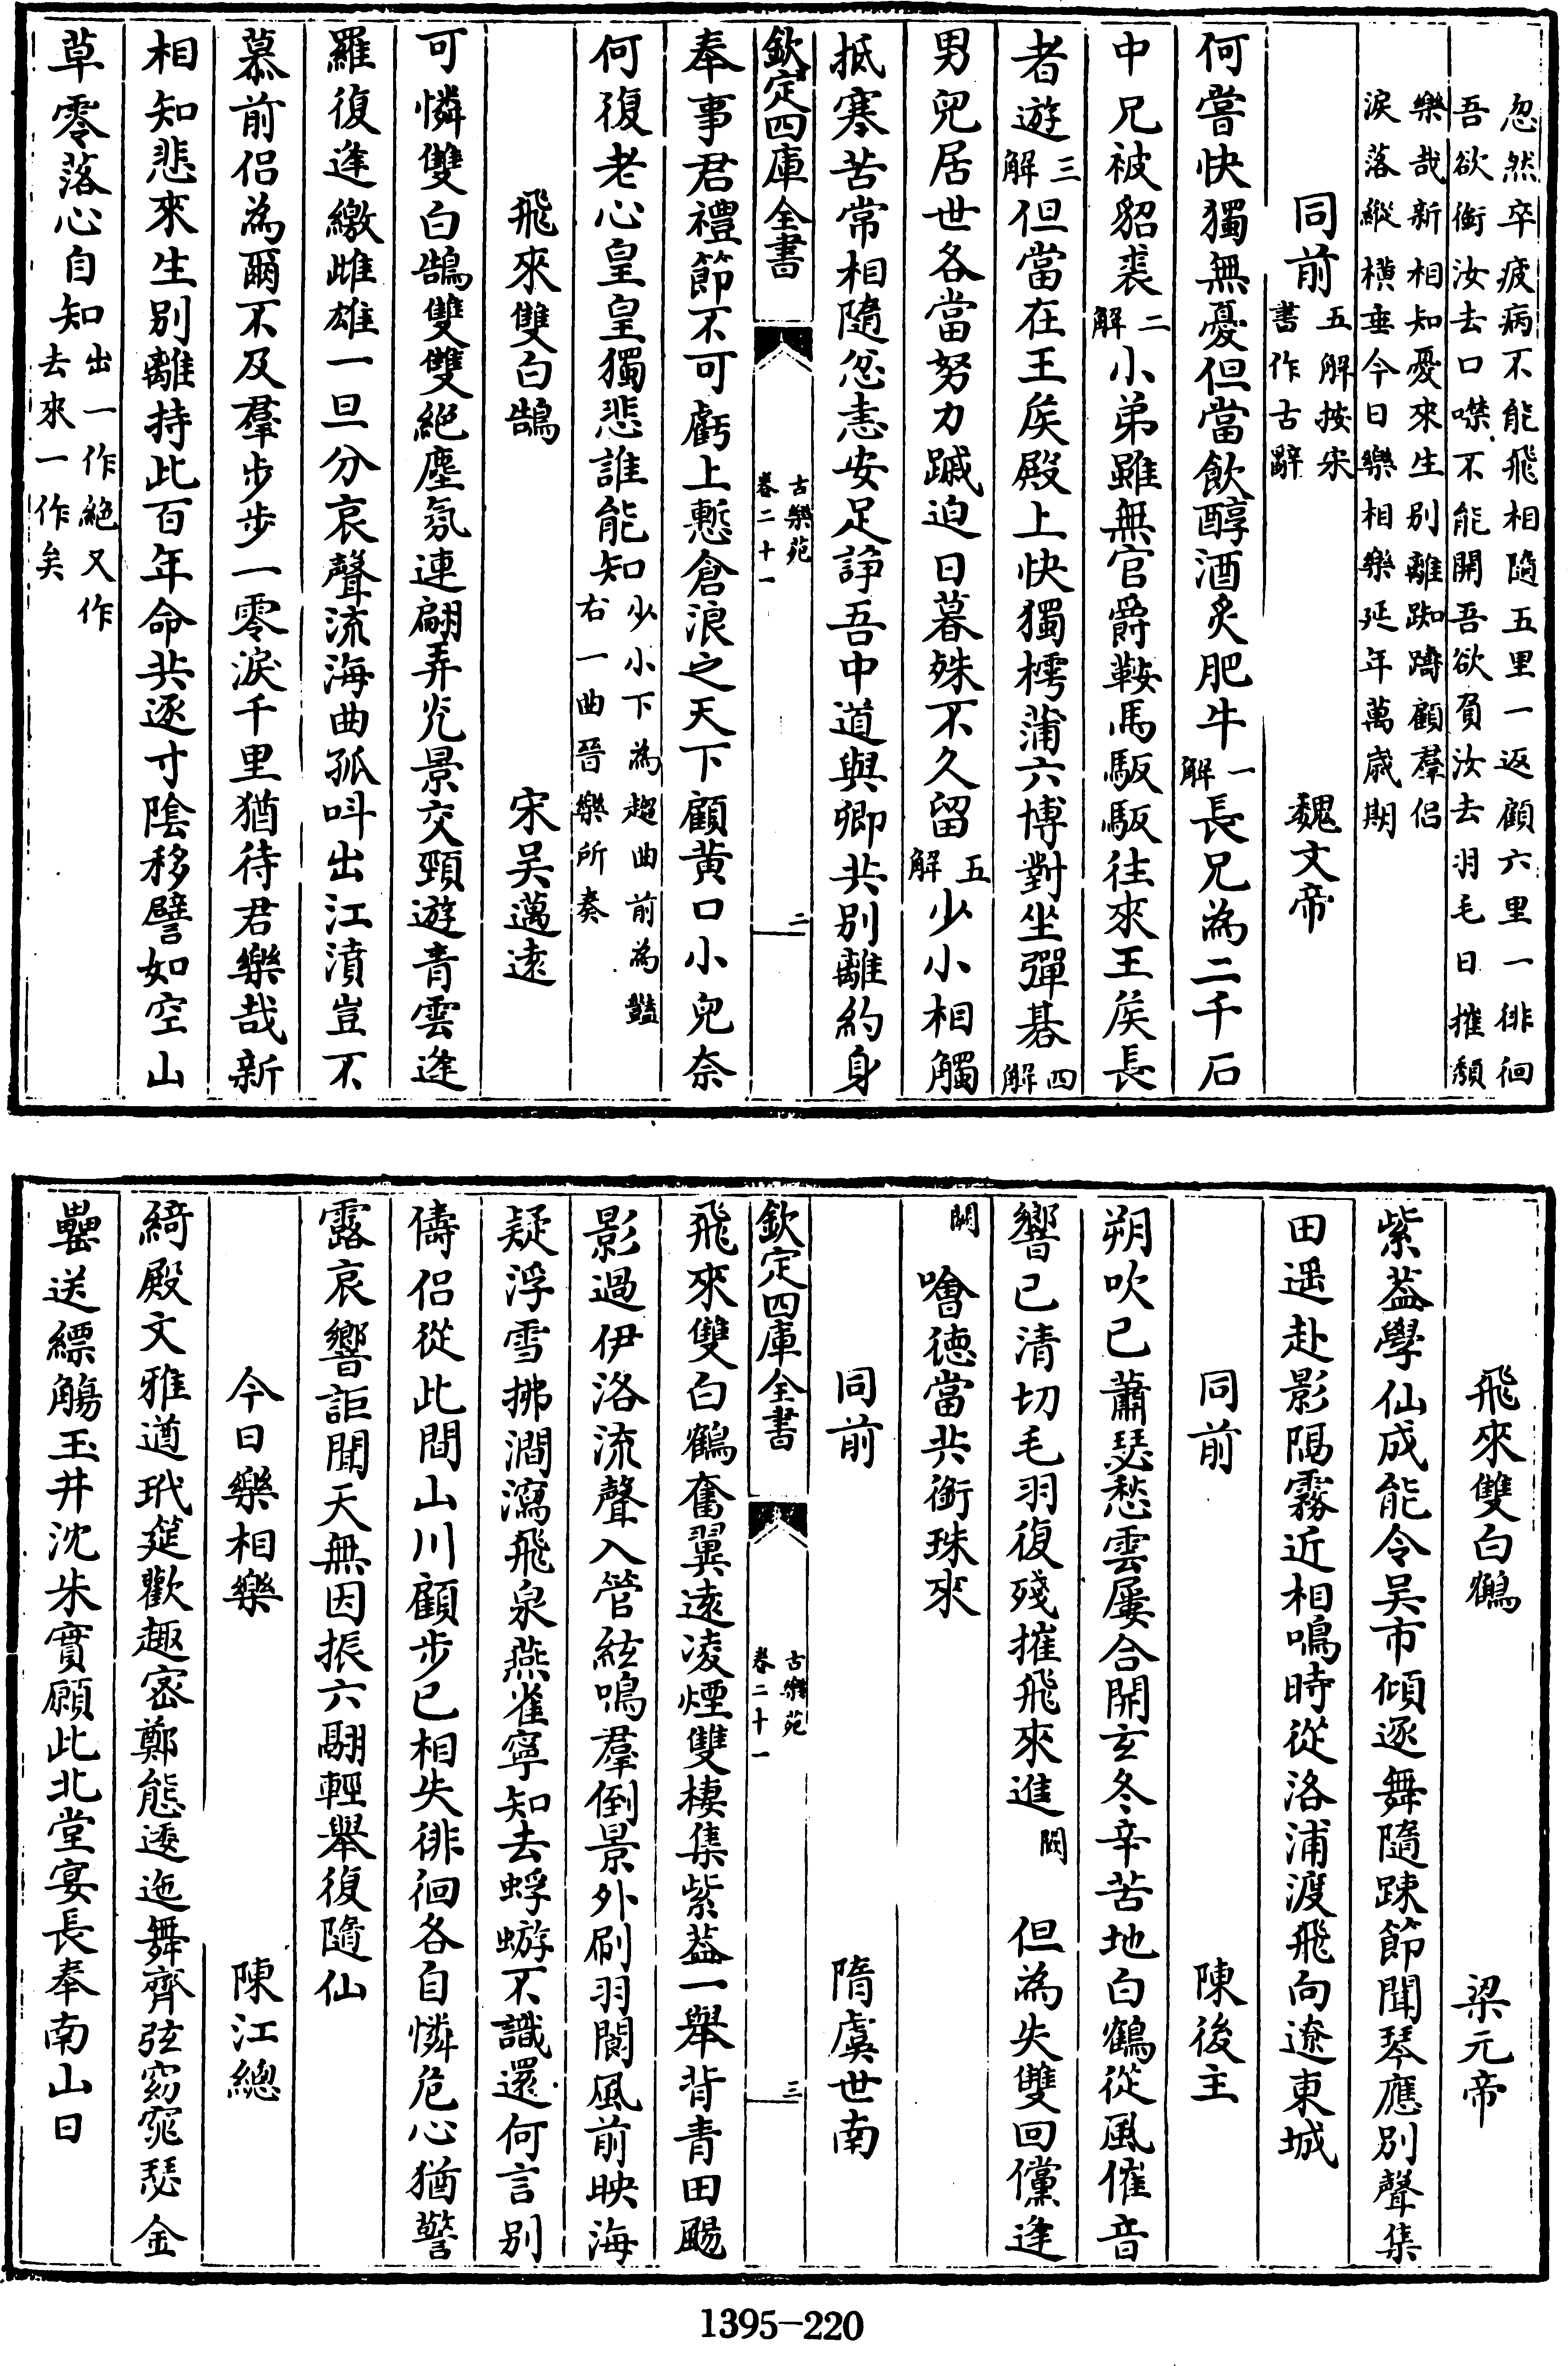 忽然卒疲病不能飛相隨五里一返顧六里一徘徊
吾欲銜汝去口噤不能開吾欲負汝去羽毛日摧頹
樂哉新相知憂來生別離踟躊顧羣侶
淚落縱橫垂今日樂相樂延年萬歲期
同前五解按宋書作古辭 魏文帝
何嘗快獨無憂但當飲醇酒炙肥牛一解長兄為二千石
中兄被貂裘二解小弟雖無官爵鞍馬馺馺往來王矦長
者遊三解但當在王矦殿上快獨樗蒲六博對坐彈碁四解
男兒居世各當努力蹴迫日暮殊不久留五解少小相觸
抵寒苦常相隨忿恚安足諍吾中道與卿共別離約身
欽定四庫全書 古樂苑卷二十一 二
奉事君禮節不可虧上慙倉浪之天下顧黃口小兒奈
何復老心皇皇獨悲誰能知少小下為趨曲前為豔右一曲晉樂所奏
飛來雙白鵠 宋吳邁遠
可憐雙白鵠雙雙絕塵氛連翩弄光景交頸遊青雲逢
羅復逢繳雌雄一旦分哀聲流海曲孤呌出江濆豈不
慕前侶為爾不及羣步步一零淚千里猶待君樂哉新
相知悲來生別離持此百年命共逐寸陰移譬如空山
草零落心自知出一作絕又作去來一作矣
飛來雙白鶴 梁元帝
紫葢學仙成能令吳市傾逐舞隨踈節聞琴應別聲集
田遥赴影隔霧近相鳴時從洛浦渡飛向遼東城
同前 陳後主
朔吹已蕭瑟愁雲屢合開玄冬辛苦地白鶴從風催音
響已清切毛羽復殘摧飛來進闕 但為失雙回儻逢
闕 噲德當共銜珠來
同前 隋虞世南
欽定四庫全書 古樂苑卷二十一 三
飛來雙白鶴奮翼遠凌煙雙棲集紫葢一舉背青田颺
影過伊洛流聲入管絃鳴羣倒景外刷羽閬風前映海
疑浮雪拂澗瀉飛泉燕雀寧知去蜉蝣不識還何言別
儔侶從此間山川顧步已相失徘徊各自憐危心猶警
露哀響詎聞天無因振六翮輕舉復隨仙
今日樂相樂 陳江總
綺殿文雅遒玳筵歡趣密鄭態逶迤舞齊弦窈窕瑟金
罍送縹觴玉井沈朱實願此北堂宴長奉南山日
1395-220